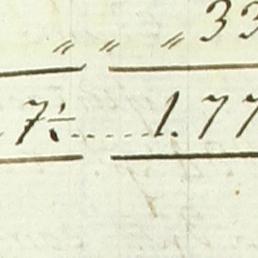 " " " 33
7½ ..... 1.77